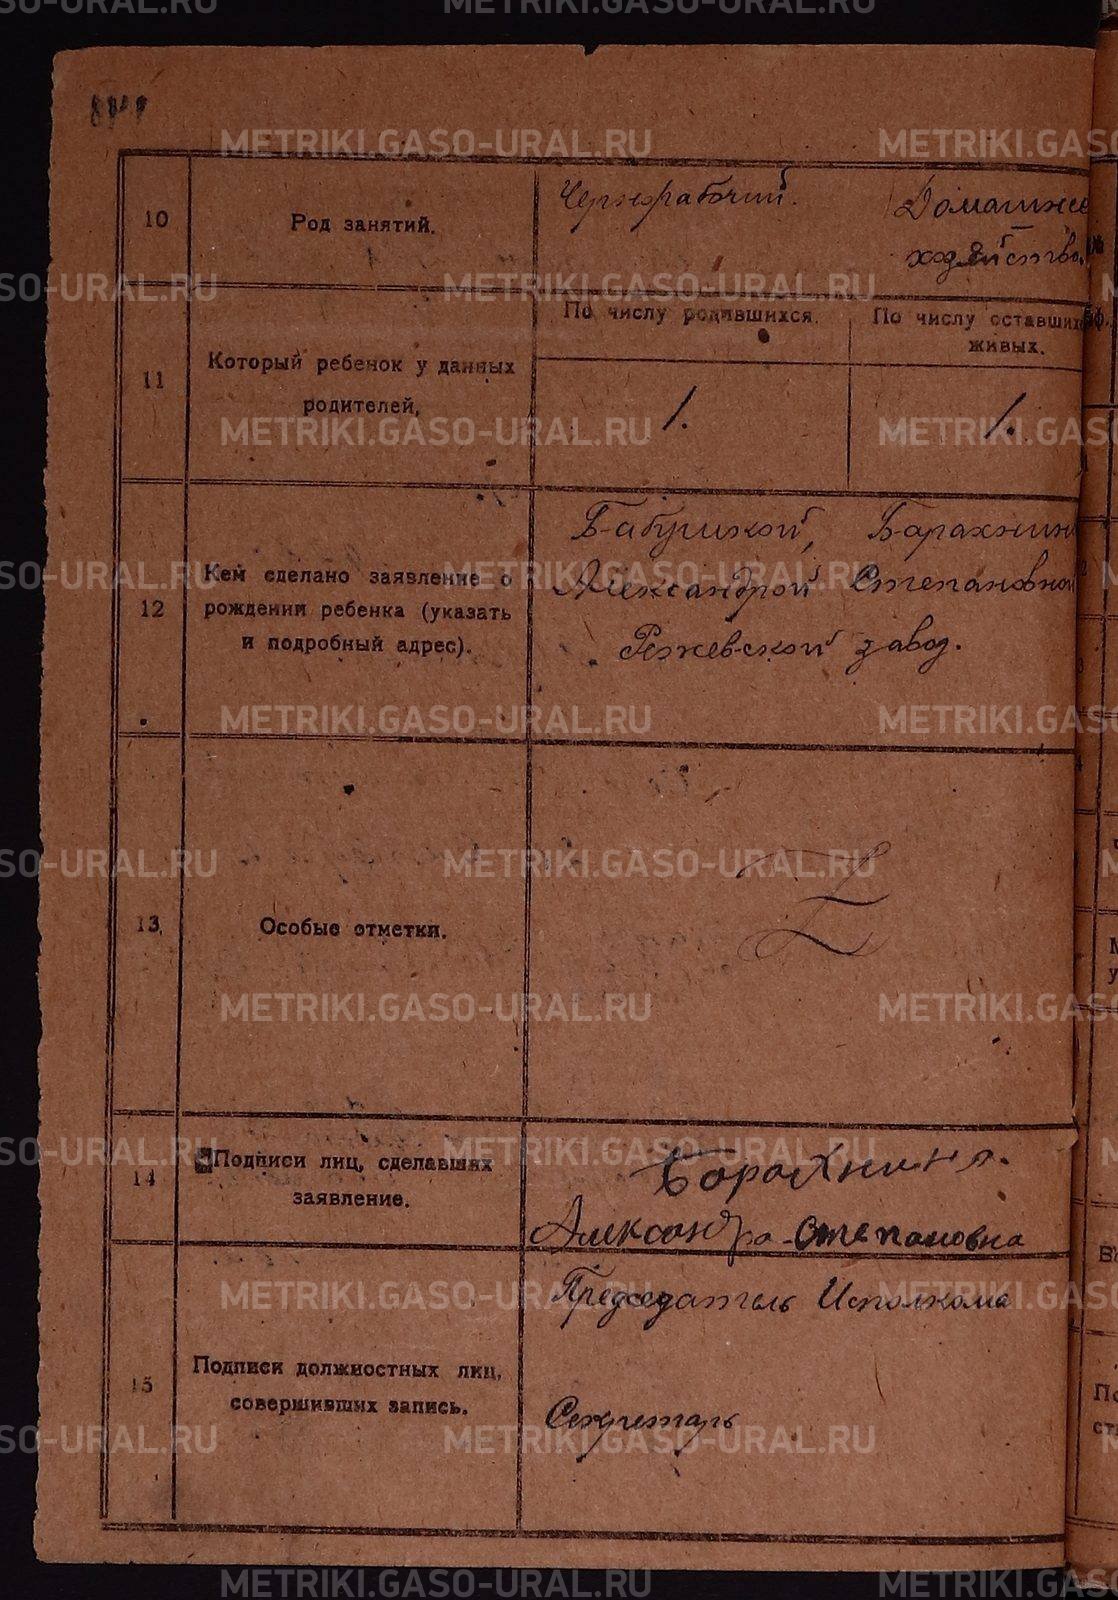 METRIKI.GASO-URAL.RU
10
Род занятий.
Чернорабочий.
Домашнее
ходяйство.
11
Который ребенок у данных
родителей,
По числу родившихся.
По числу оставших
живых.
1.
1.
12
Кем сделано заявление о
рождении ребенка (указать
и подробный адрес).
Бабушкой, Барахнин
Александрой Степановной
Режевской завод.
13.
Особые отметки.
Z
14
Подписи лиц, сделавших
заявление.
Борохнина.
Александра Степановна
15
Подписи должностных лиц,
совершивших запись.
Председатель Исполкома
Секретарь